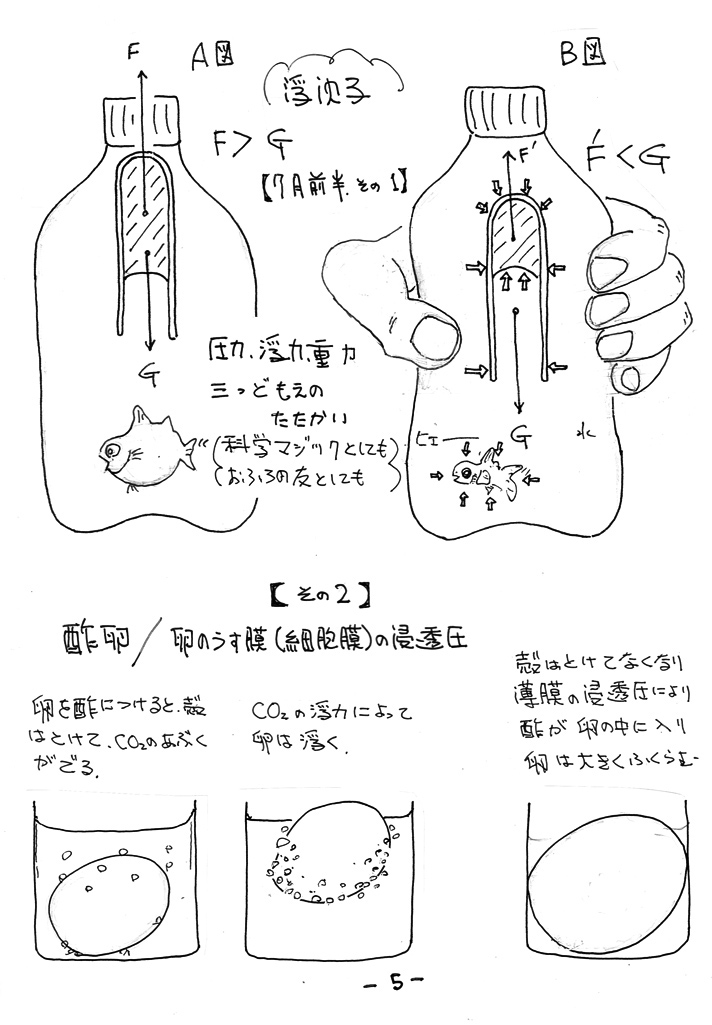 F
A図
B図
浮沈子
F>G
F'
F'<G
【7月前半.その1】
G
圧力、浮力、重力
三つどもえの
たたかい
(科学マジックとしても)
(おふろの友としても)
ヒエー
G
水
【その2】
酢卵/卵のうす膜(細胞膜)の浸透圧
卵を酢につけると、殻
はとけて、CO₂のあぶく
がでる。
CO₂の浮力によって
卵は浮く.
殻はとけてなくなり
薄膜の浸透圧により
酢が卵の中に入り
卵は大きくふくらむ
-5-